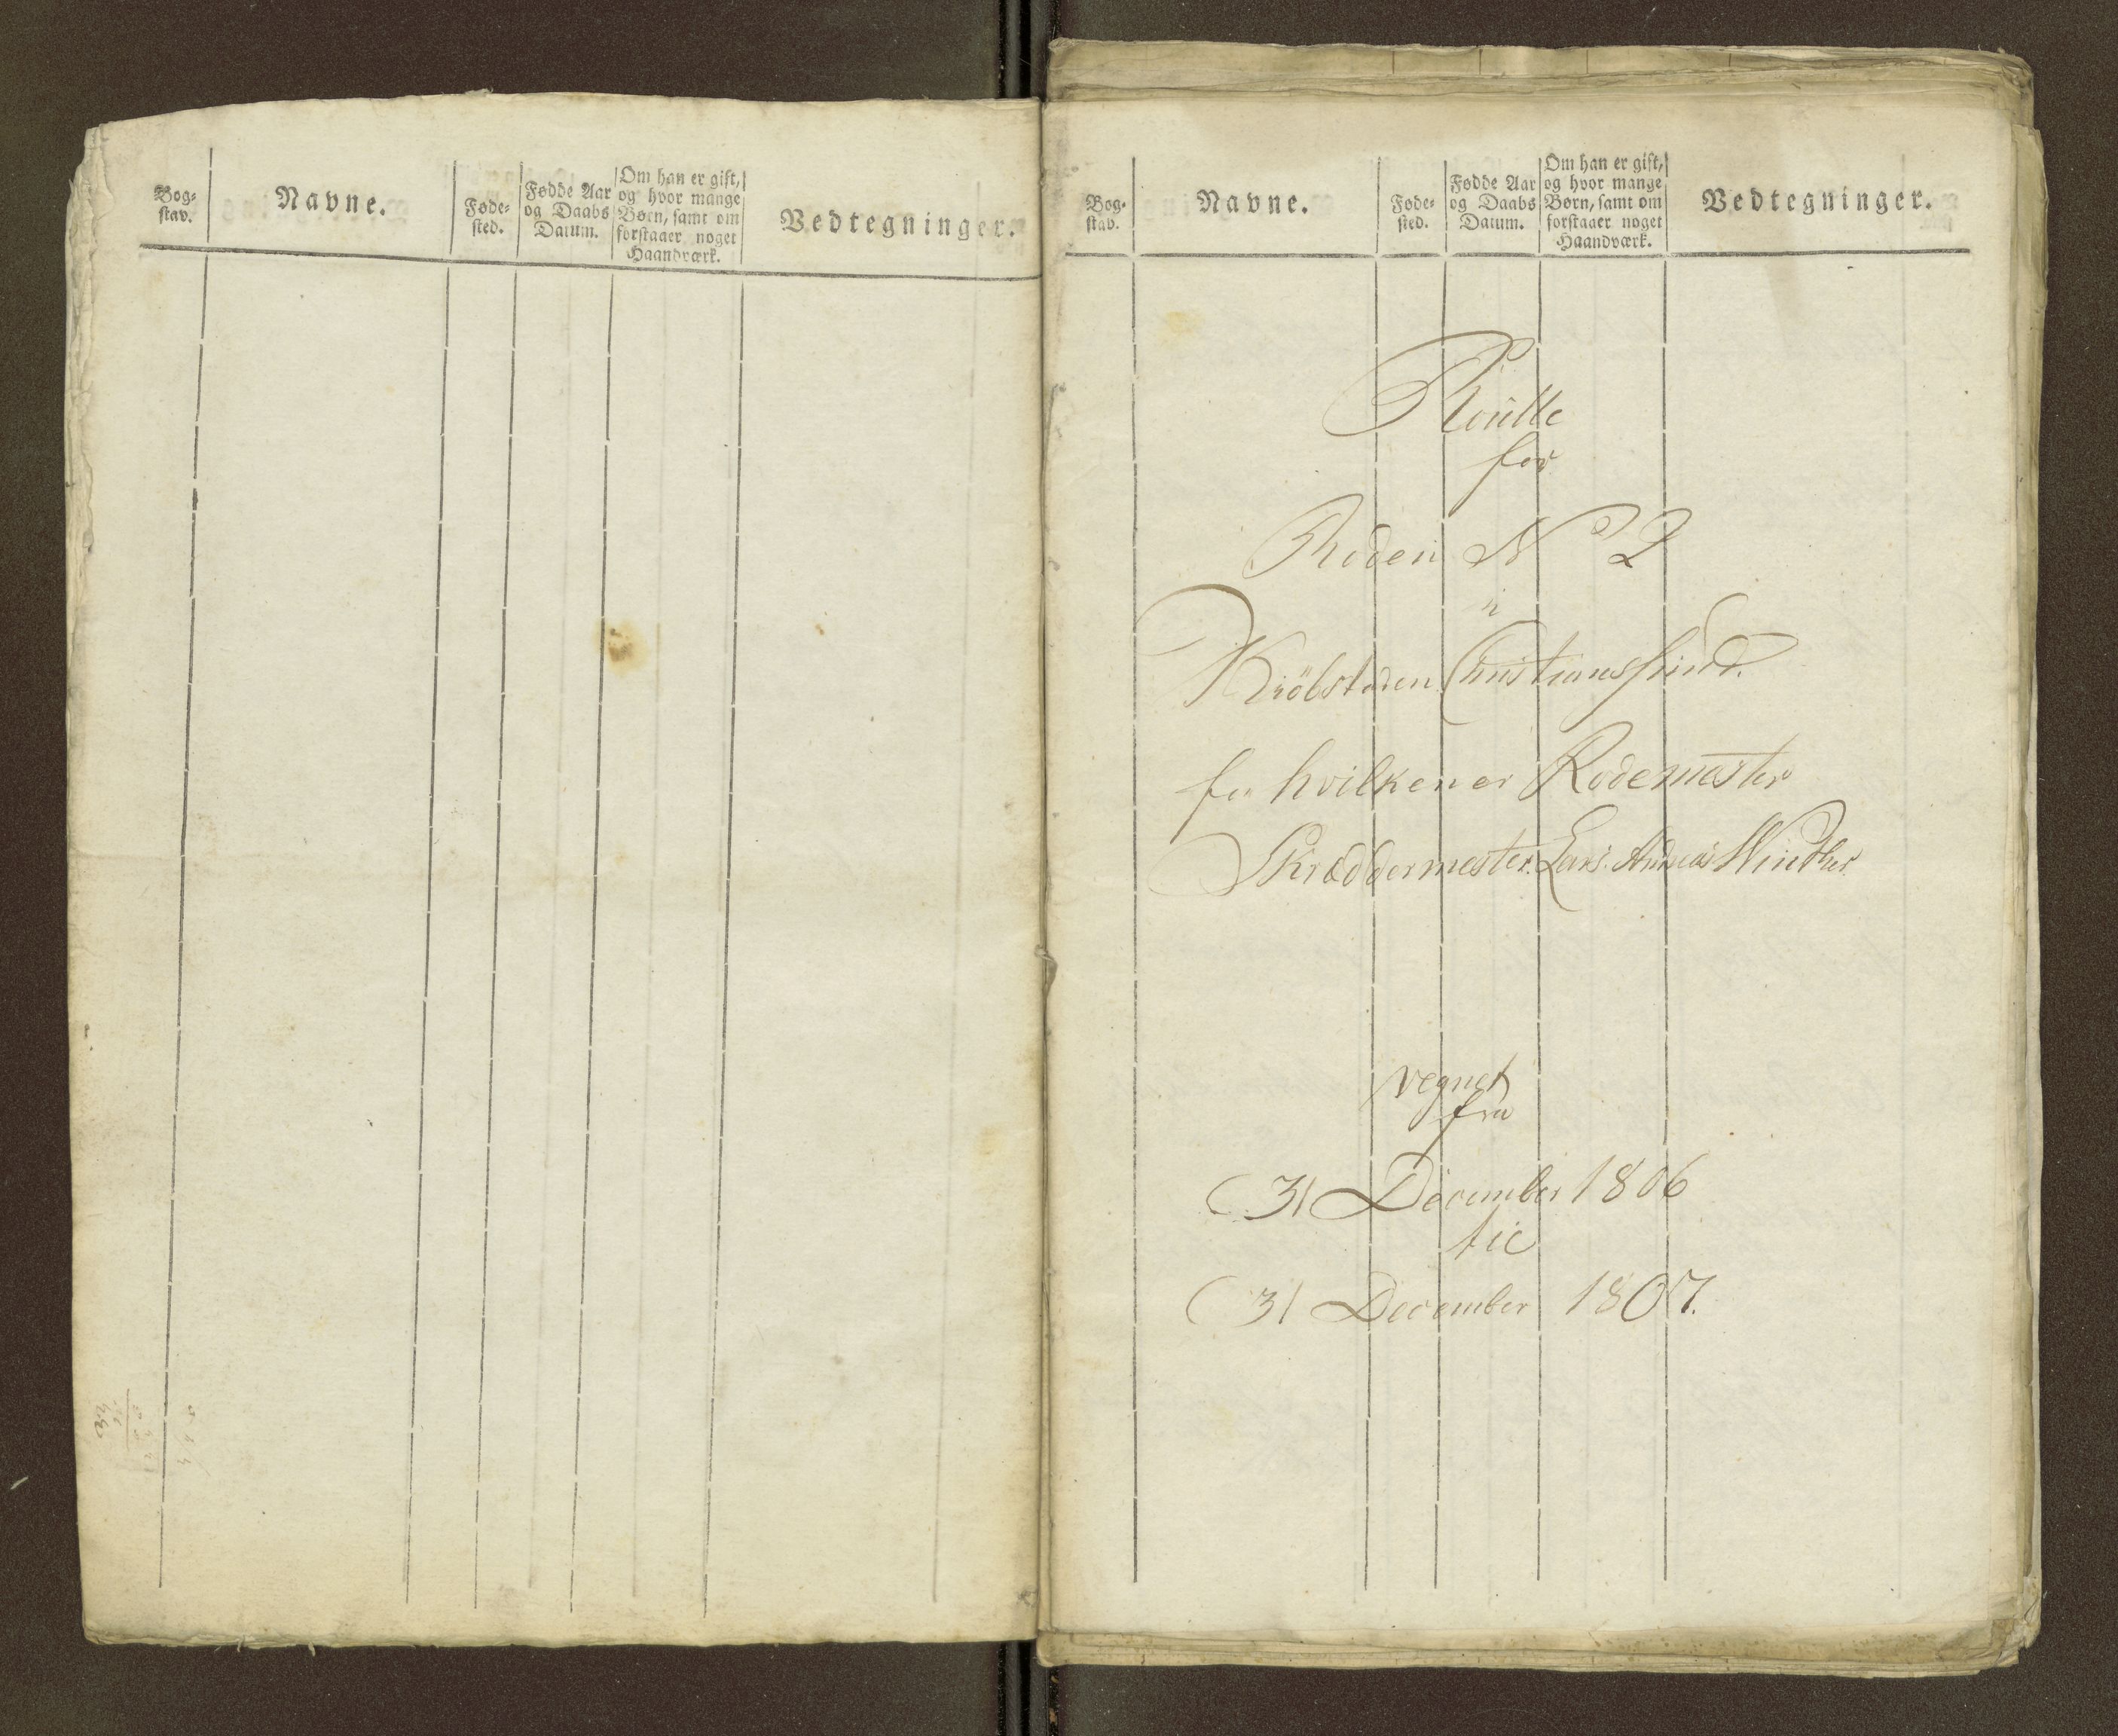 Bog-
stav.
Navne.
Føde-
sted.
Fødde Aar
og Daabs
Datum.
Om han er gift,
og hvor mange
Børn, samt om
forstaaer noget
Haandværk.
Vedtegninger.
Bog-
stav.
Navne.
Føde-
sted.
Fødde Aar
og Daabs
Datum.
Om han er gift,
og hvor mange
Børn, samt om
forstaaer noget
Haandværk.
Vedtegninger.
Roulle
for
Roden N 2
i
Kiöbstaden Christianssund.
for hvilken er Rodemester
Skræddermester Lars Andreas Winther
regnet
fra
31 December 1806
til
31 December 1807.